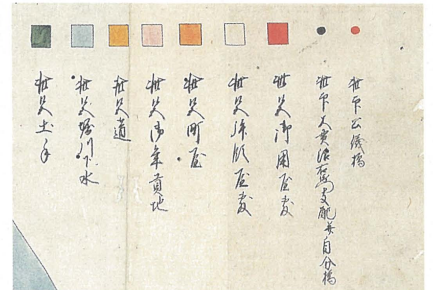 此印公儀橋
此印大貫治右衛門支配并自分橋
此色御用屋敷
此色拝領屋敷
此色町屋
此色御年貢地
此色道
此色堀川下水
此色土手